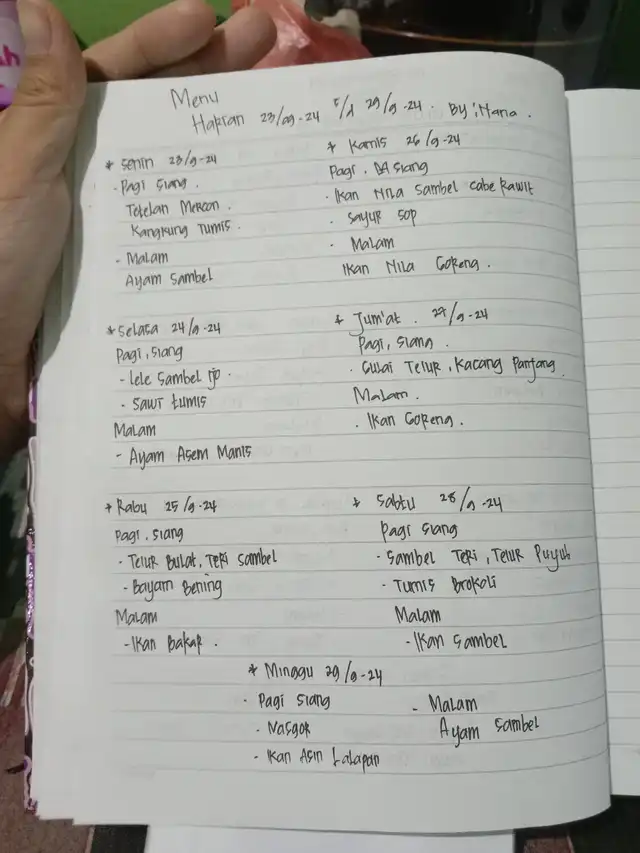 Menu
Harian 23/09-24 s/d 29/9-24. By : Hana.
* Senin 23/9-24
- Pagi Siang.
Tetelan Mercon.
Kangkung Tumis.
- Malam
Ayam Sambel
* Selasa 24/9-24
Pagi, Siang
- Lele Sambel Ijo.
- Sawi tumis
Malam
- Ayam Asem Manis
* Rabu 25/9-24
Pagi, Siang
- Telur Bulat, Teri Sambel
- Bayam Bening
Malam
- Ikan Bakar.
* Kamis 26/9-24
Pagi, Siang
- Ikan Nila Sambel Cabe Rawit
- Sayur Sop
- Malam
Ikan Nila Goreng.
* Jum'at. 27/9-24
Pagi, Siang.
- Gulai Telur, Kacang Panjang
Malam.
. Ikan Goreng.
* Sabtu 28/9-24
Pagi Siang
- Sambel Teri, Telur Puyuh
- Tumis Brokoli
Malam
- Ikan Sambel
* Minggu 29/9-24
- Pagi Siang
- Nasgor
- Ikan Asin Lalapan
- Malam
Ayam Sambel